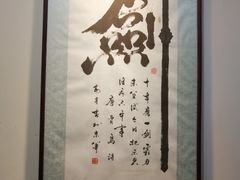 劍
十年磨一劍霜刃
未曾試今日把示君
誰有不平事
唐賈島詩